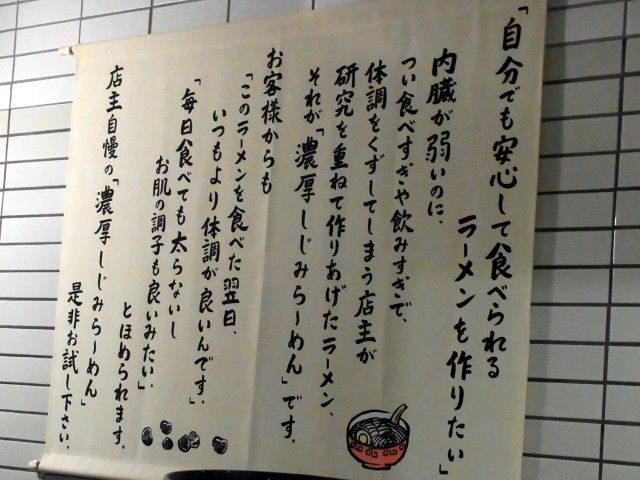 「自分でも安心して食べられる
ラーメンを作りたい」
内臓が弱いのに、
つい食べすぎや飲みすぎで、
体調をくずしてしまう店主が
研究を重ねて作りあげたラーメン、
それが「濃厚しじみらーめん」です。
お客様からも
「このラーメンを食べた翌日、
いつもより体調が良いんです」、
「毎日食べても太らないし
お肌の調子も良いみたい」
とほめられます。
店主自慢の「濃厚しじみらーめん」
是非お試し下さい。